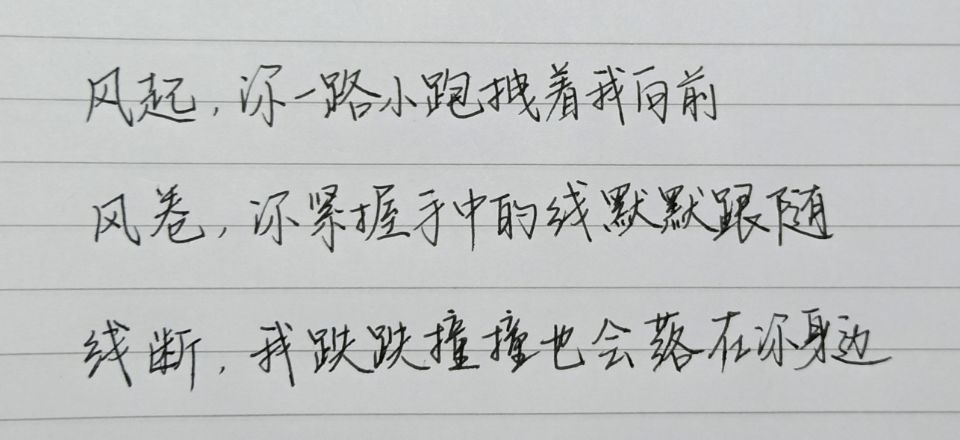 风起，你一路小跑拽着我向前
风卷，你紧握手中的线默默跟随
线断，我跌跌撞撞也会落在你身边